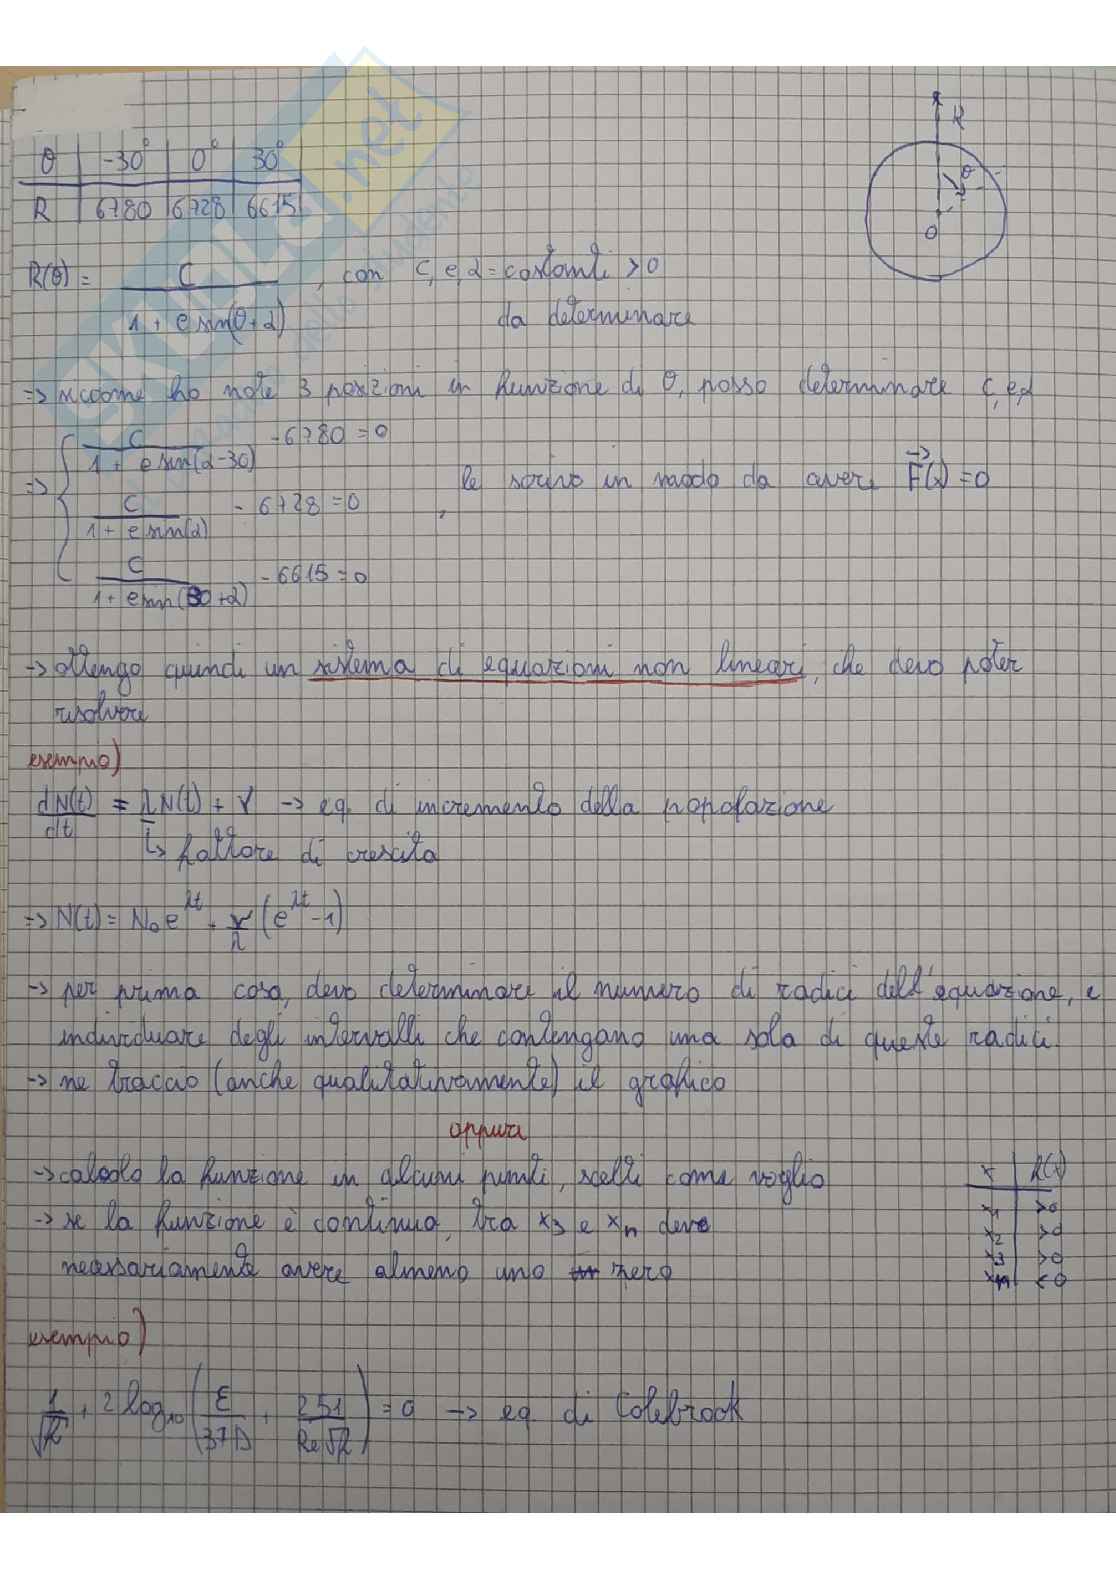 θ | -30° | 0° | 30°
R | 6780 | 6728 | 6615
R
θ
O
R(θ) = C / (1 + e sin(θ+α)) , con C, e, α = costanti > 0
da determinare
=> siccome ho note 3 posizioni in funzione di θ, posso determinare C, e, α
=> { C / (1 + e sin(α-30)) - 6780 = 0
C / (1 + e sin(α)) - 6728 = 0 , le scrivo in modo da avere F(x) = 0
C / (1 + e sin(30+α)) - 6615 = 0
-> ottengo quindi un sistema di equazioni non lineari, che devo poter
risolvere
esempio)
dN(t)/dt = λN(t) + γ -> eq. di incremento della popolazione
↳ fattore di crescita
=> N(t) = N₀e^λt + γ/λ (e^λt - 1)
-> per prima cosa, devo determinare il numero di radici dell'equazione, e
individuare degli intervalli che contengano una sola di queste radici.
-> ne traccio (anche qualitativamente) il grafico
oppure
-> calcolo la funzione in alcuni punti, scelti come voglio
-> se la funzione è continua, tra x₃ e xₙ deve
necessariamente avere almeno uno zero
x | f(x)
x₁ | >0
x₂ | >0
x₃ | >0
xₙ | <0
esempio)
1/√f + 2 log₁₀ (ε/3.7D + 2.51/Re√f) = 0 -> eq. di Colebrook
SKUOLA.net